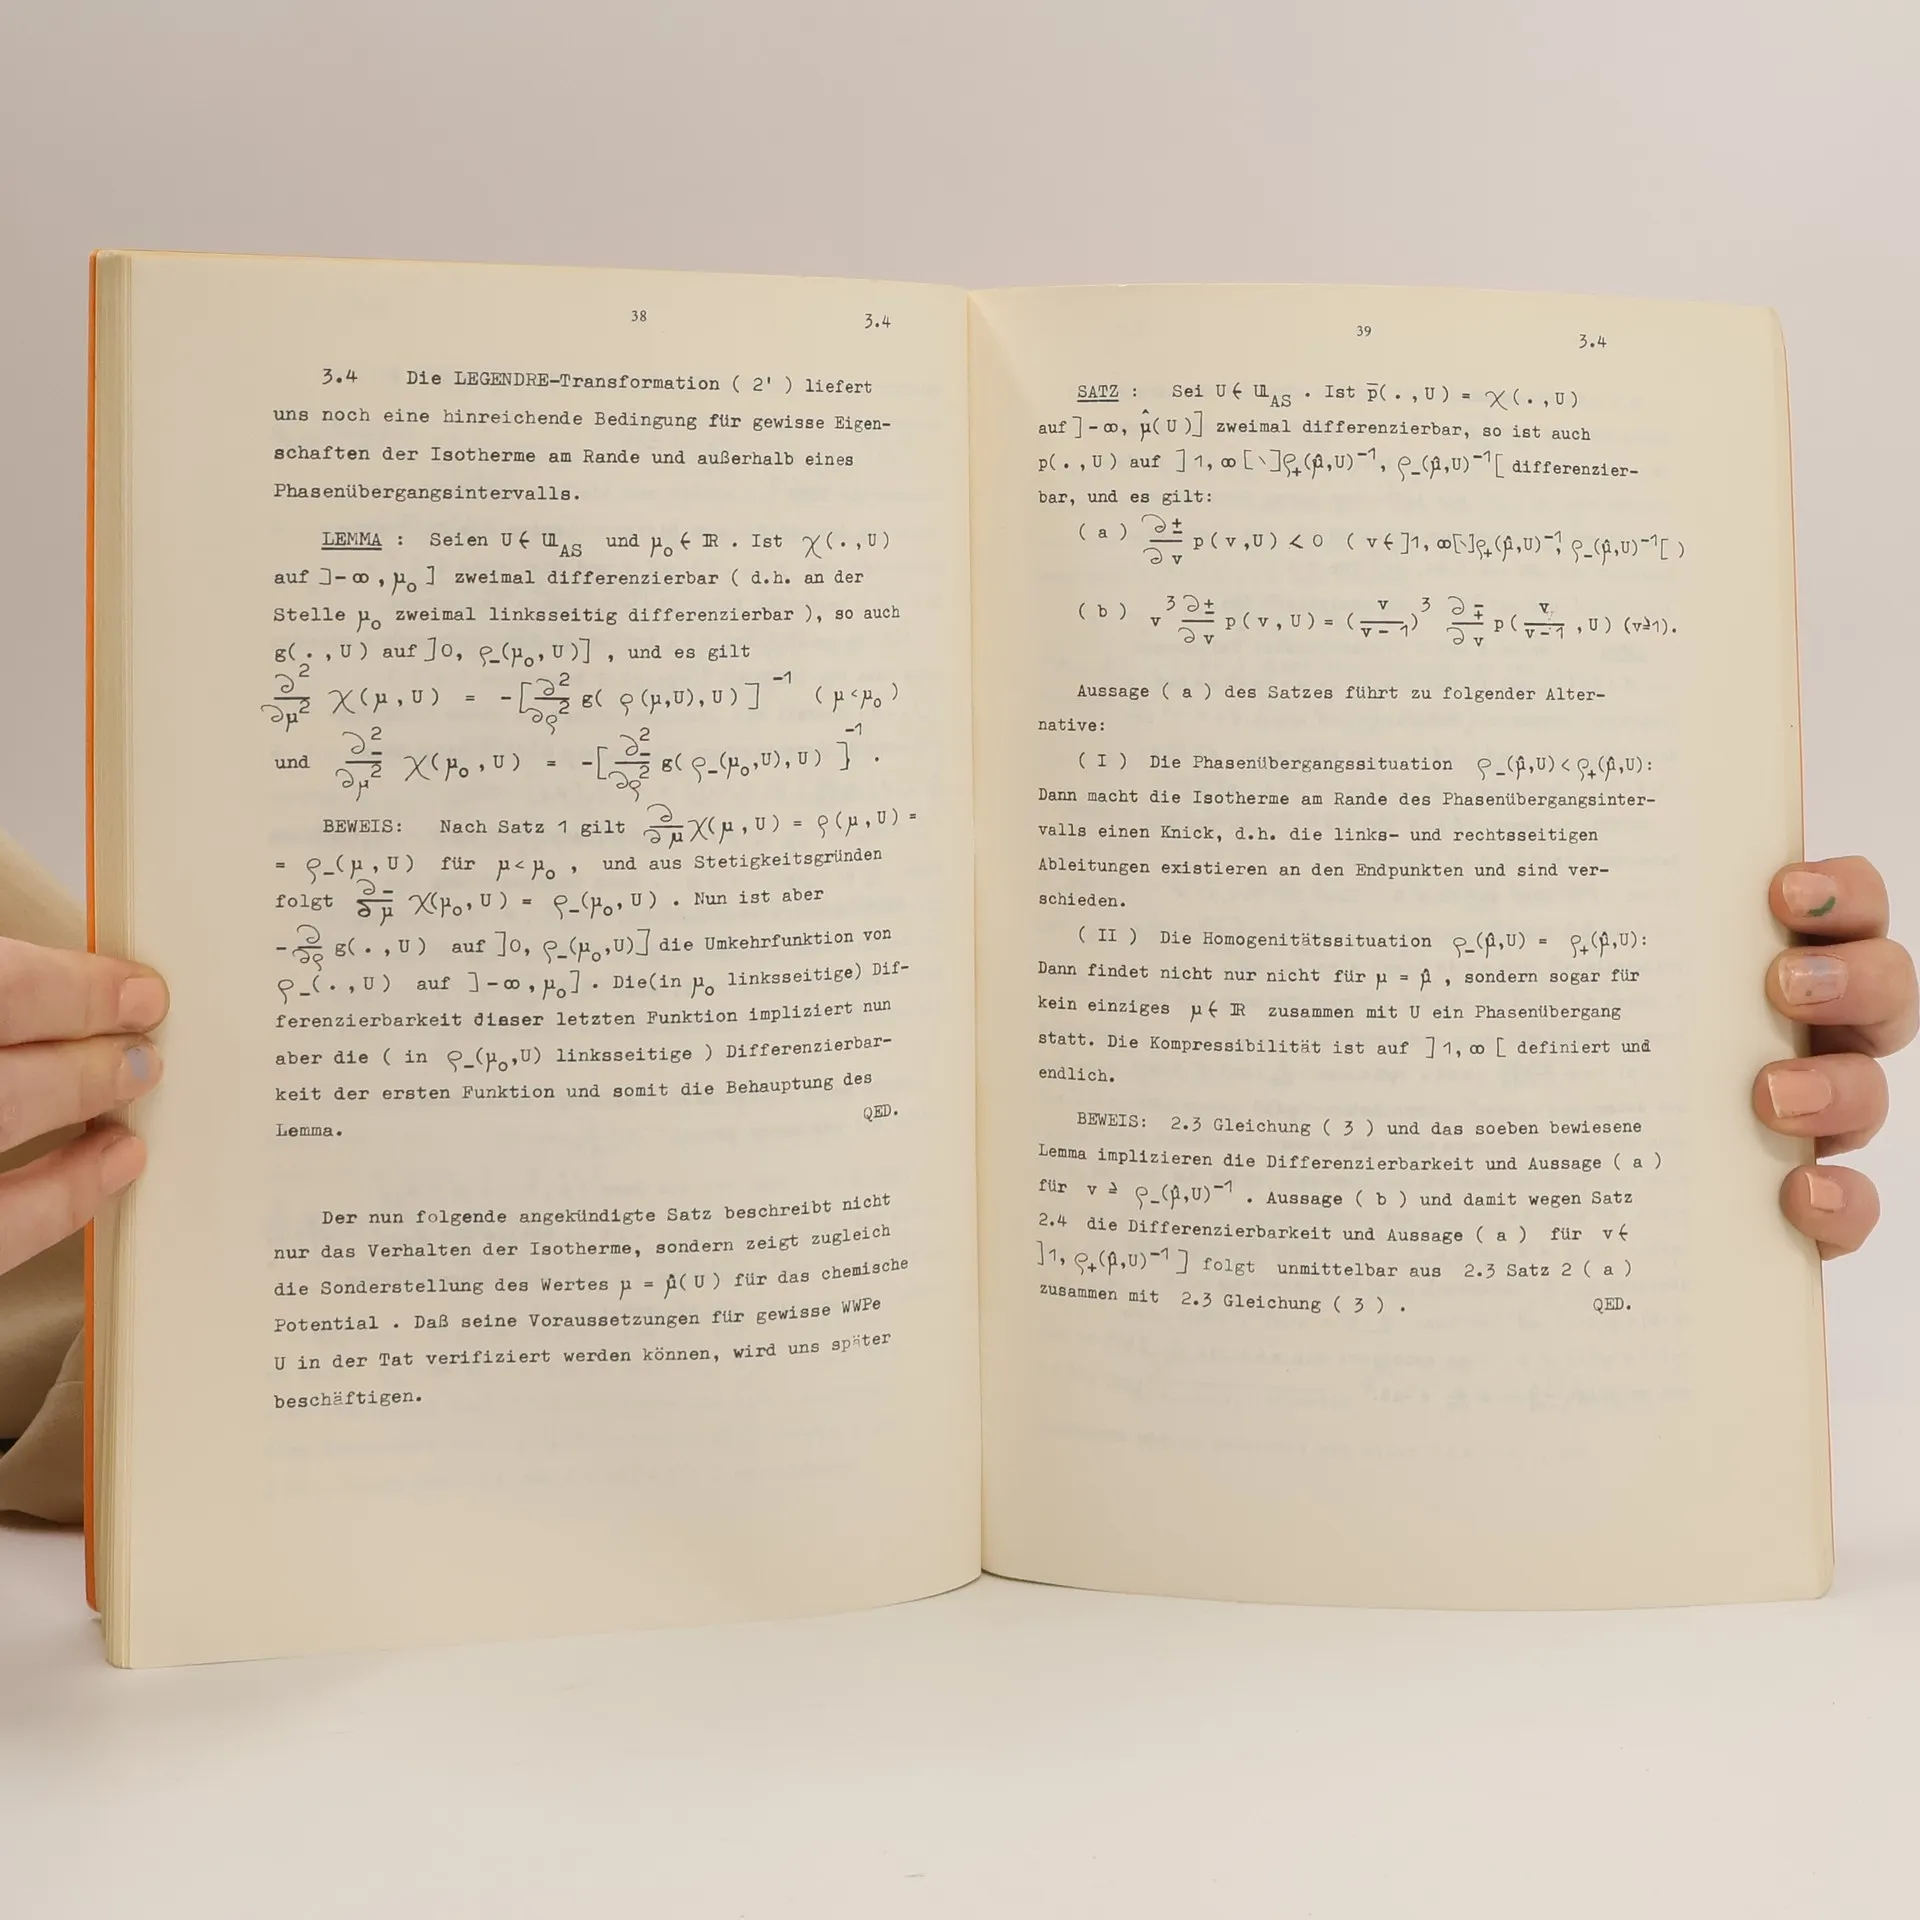 38
3.4
3.4 Die LEGENDRE-Transformation ( 2' ) liefert
uns noch eine hinreichende Bedingung für gewisse Eigen-
schaften der Isotherme am Rande und außerhalb eines
Phasenübergangsintervalls.
LEMMA : Seien U ∈ 𝔘_AS und μ₀ ∈ ℝ . Ist χ(.,U)
auf ]-∞,μ₀] zweimal differenzierbar ( d.h. an der
Stelle μ₀ zweimal linksseitig differenzierbar ), so auch
g(.,U) auf ]0, ρ_(μ₀,U)] , und es gilt
∂²/∂μ² χ(μ,U) = -[∂²/∂ρ² g( ρ(μ,U),U)]⁻¹ (μ<μ₀)
und ∂²_/∂μ² χ(μ₀,U) = -[∂²_/∂ρ² g(ρ_(μ₀,U),U) ]⁻¹ .
BEWEIS: Nach Satz 1 gilt ∂/∂μ χ(μ,U) = ρ(μ,U) =
= ρ_(μ,U) für μ<μ₀ , und aus Stetigkeitsgründen
folgt ∂_/∂μ χ(μ₀,U) = ρ_(μ₀,U) . Nun ist aber
-∂/∂ρ g(.,U) auf ]0, ρ_(μ₀,U)] die Umkehrfunktion von
ρ_(.,U) auf ]-∞,μ₀]. Die(in μ₀ linksseitige) Dif-
ferenzierbarkeit dieser letzten Funktion impliziert nun
aber die ( in ρ_(μ₀,U) linksseitige ) Differenzierbar-
keit der ersten Funktion und somit die Behauptung des
Lemma. QED.
Der nun folgende angekündigte Satz beschreibt nicht
nur das Verhalten der Isotherme, sondern zeigt zugleich
die Sonderstellung des Wertes μ = μ̂(U) für das chemische
Potential . Daß seine Voraussetzungen für gewisse WWPe
U in der Tat verifiziert werden können, wird uns später
beschäftigen.
39
3.4
SATZ : Sei U ∈ 𝔘_AS . Ist p̄(.,U) = χ(.,U)
auf ]-∞, μ̂(U)] zweimal differenzierbar, so ist auch
p(.,U) auf ]1,∞[\]ρ₊(μ̂,U)⁻¹, ρ_(μ̂,U)⁻¹[ differenzier-
bar, und es gilt:
( a ) ∂±/∂v p(v,U) < 0 ( v∈]1,∞[\]ρ₊(μ̂,U)⁻¹, ρ_(μ̂,U)⁻¹[ )
( b ) v³ ∂±/∂v p(v,U) = (v/(v-1))³ ∂∓/∂v p(v/(v-1) ,U) (v≥1).
Aussage ( a ) des Satzes führt zu folgender Alter-
native:
( I ) Die Phasenübergangssituation ρ_(μ̂,U) < ρ₊(μ̂,U):
Dann macht die Isotherme am Rande des Phasenübergangsinter-
valls einen Knick, d.h. die links- und rechtsseitigen
Ableitungen existieren an den Endpunkten und sind ver-
schieden.
( II ) Die Homogenitätssituation ρ_(μ̂,U) = ρ₊(μ̂,U):
Dann findet nicht nur nicht für μ = μ̂ , sondern sogar für
kein einziges μ ∈ ℝ zusammen mit U ein Phasenübergang
statt. Die Kompressibilität ist auf ]1,∞[ definiert und
endlich.
BEWEIS: 2.3 Gleichung ( 3 ) und das soeben bewiesene
Lemma implizieren die Differenzierbarkeit und Aussage ( a )
für v ≥ ρ_(μ̂,U)⁻¹ . Aussage ( b ) und damit wegen Satz
2.4 die Differenzierbarkeit und Aussage ( a ) für v ∈
]1, ρ₊(μ̂,U)⁻¹] folgt unmittelbar aus 2.3 Satz 2 ( a )
zusammen mit 2.3 Gleichung ( 3 ) . QED.